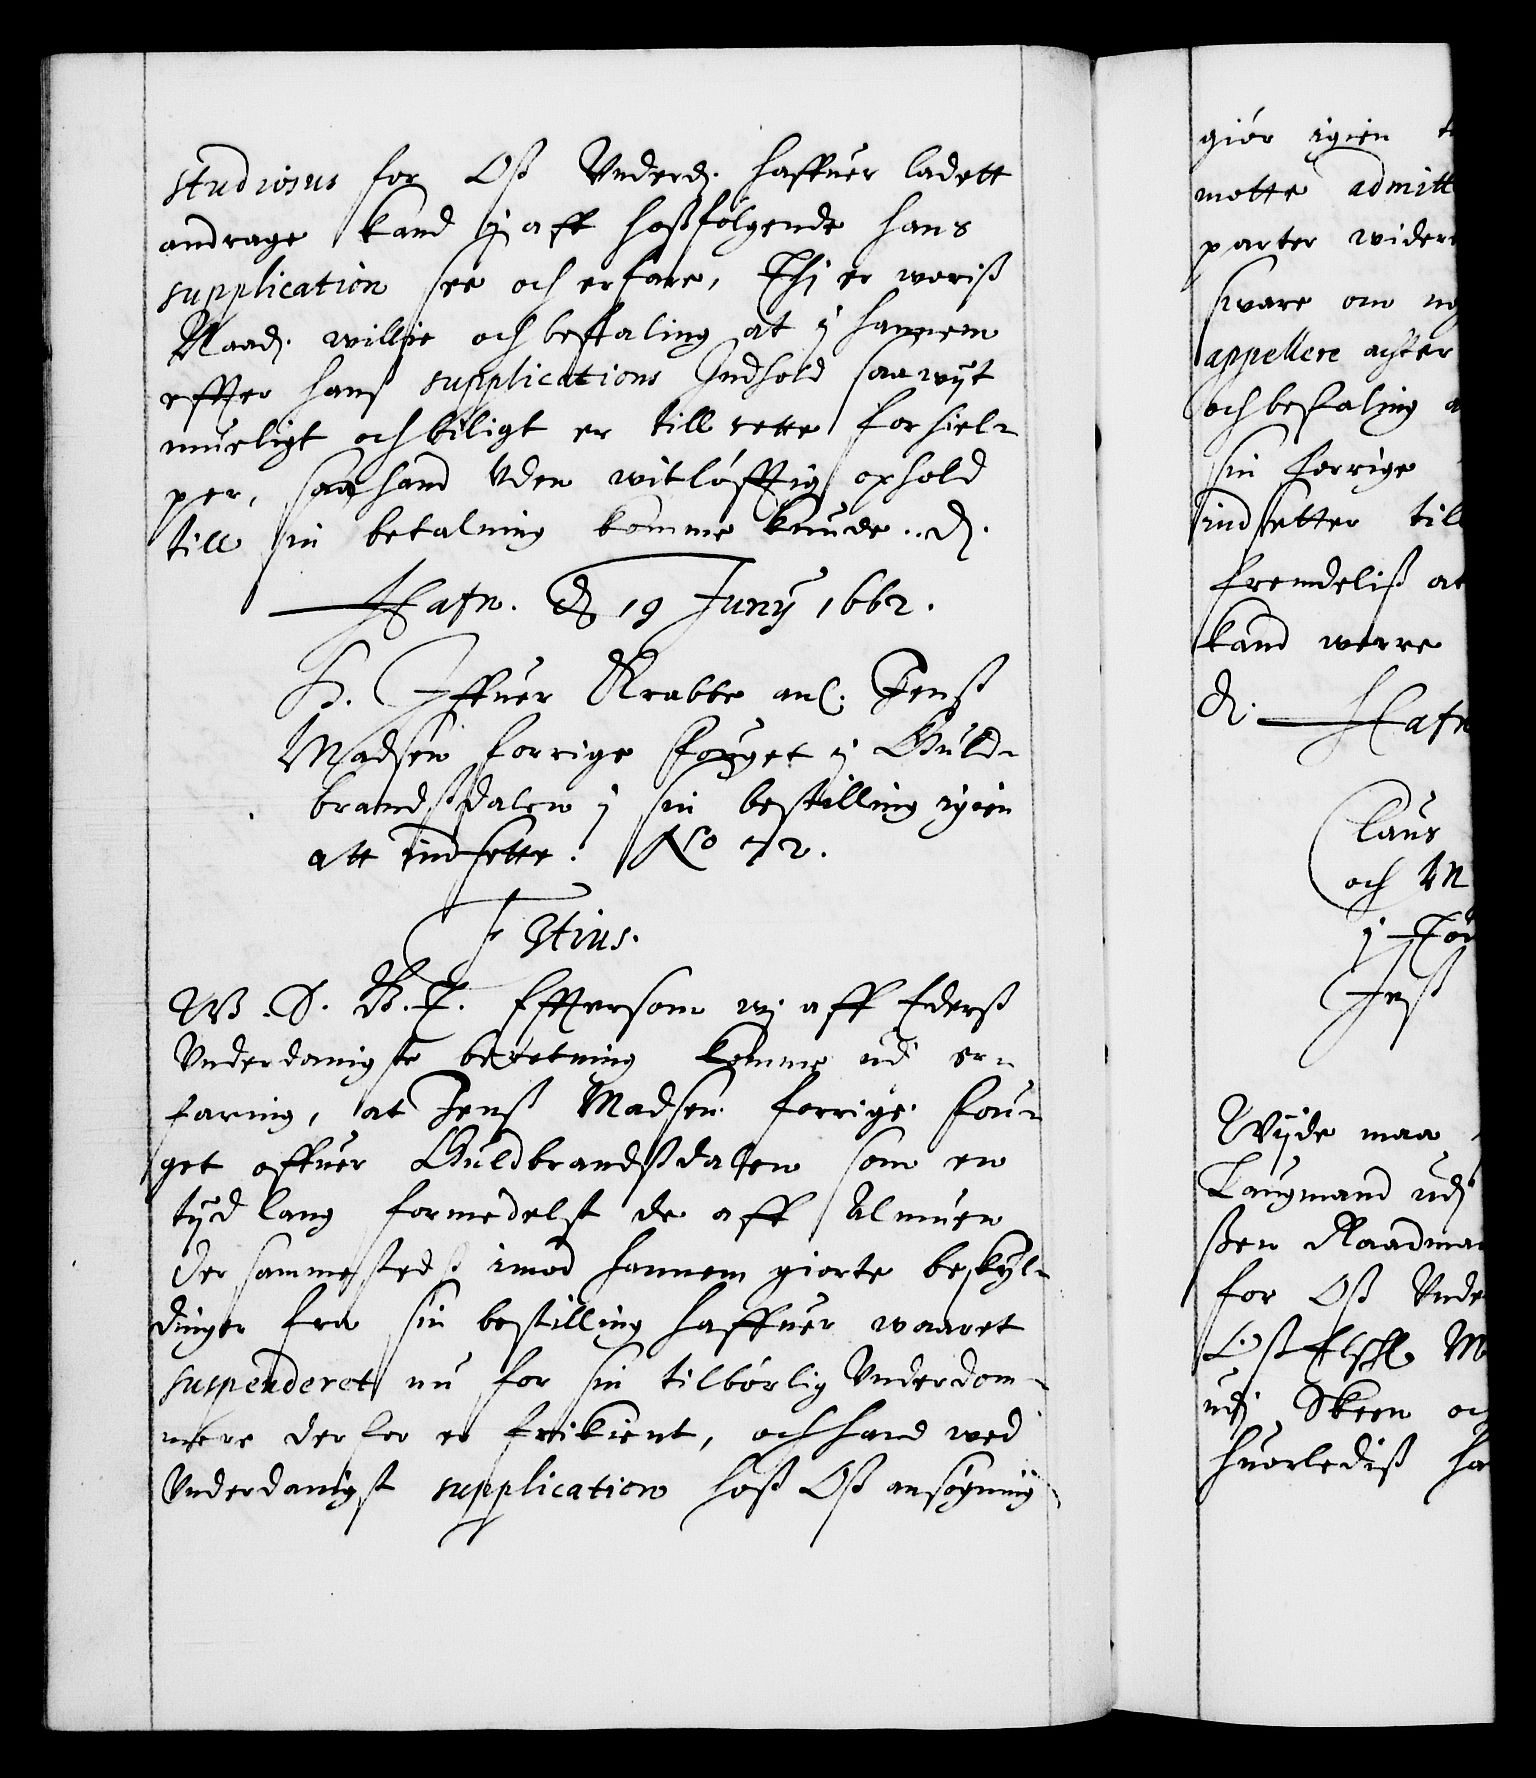 studiosus for Oß Underd. haffuer ladett
andrage kand j aff hoßfølgende hans
supplication see och erfare, Thj er woriß
Naad. willie och befaling at j hannem
effter hans supplications Indhold saawijt
mueligt och biligt er till rette forhiel-
per, saa hand Uden witløfftig ophold
till sin betalning komme kunde .. d.
Hafn. d 19 Junij 1662.
H. Iffuer Krabbe anl. Jenß
Madsen forrige fouget j Guld-
brandßdalen j sin bestilling igien
att indsette. No 72.
F 3tius.
W. S. B. T. Efftersom wj aff Ederß
Underdanigste beretning komme ud er-
faring, at Jenß Madsen forrige fou-
get offuer Guldbrandßdalen som en
tijd lang formedelst de aff Almuen
der sammestedß imod hannem giorte beskyl-
dinger fra sin bestilling haffuer waaret
suspenderet nu for sin tilbørlig Underdom-
mere derfor er frikient, och hand wed
Underdanigst supplication hoß Oß ansøgning
giør igien
motte admitt
parter widere
sware om no
appellere achter
och befaling a
sin forrige
indsetter till
fremdeliß at
kand werre
d. Hafn
Claus
och
j
Jeß
Wijde maa
Laugmand udj
ßen Raadma
for Oß Unde
Oß Elschl. M
udj Skeen oc
huorlediß ha